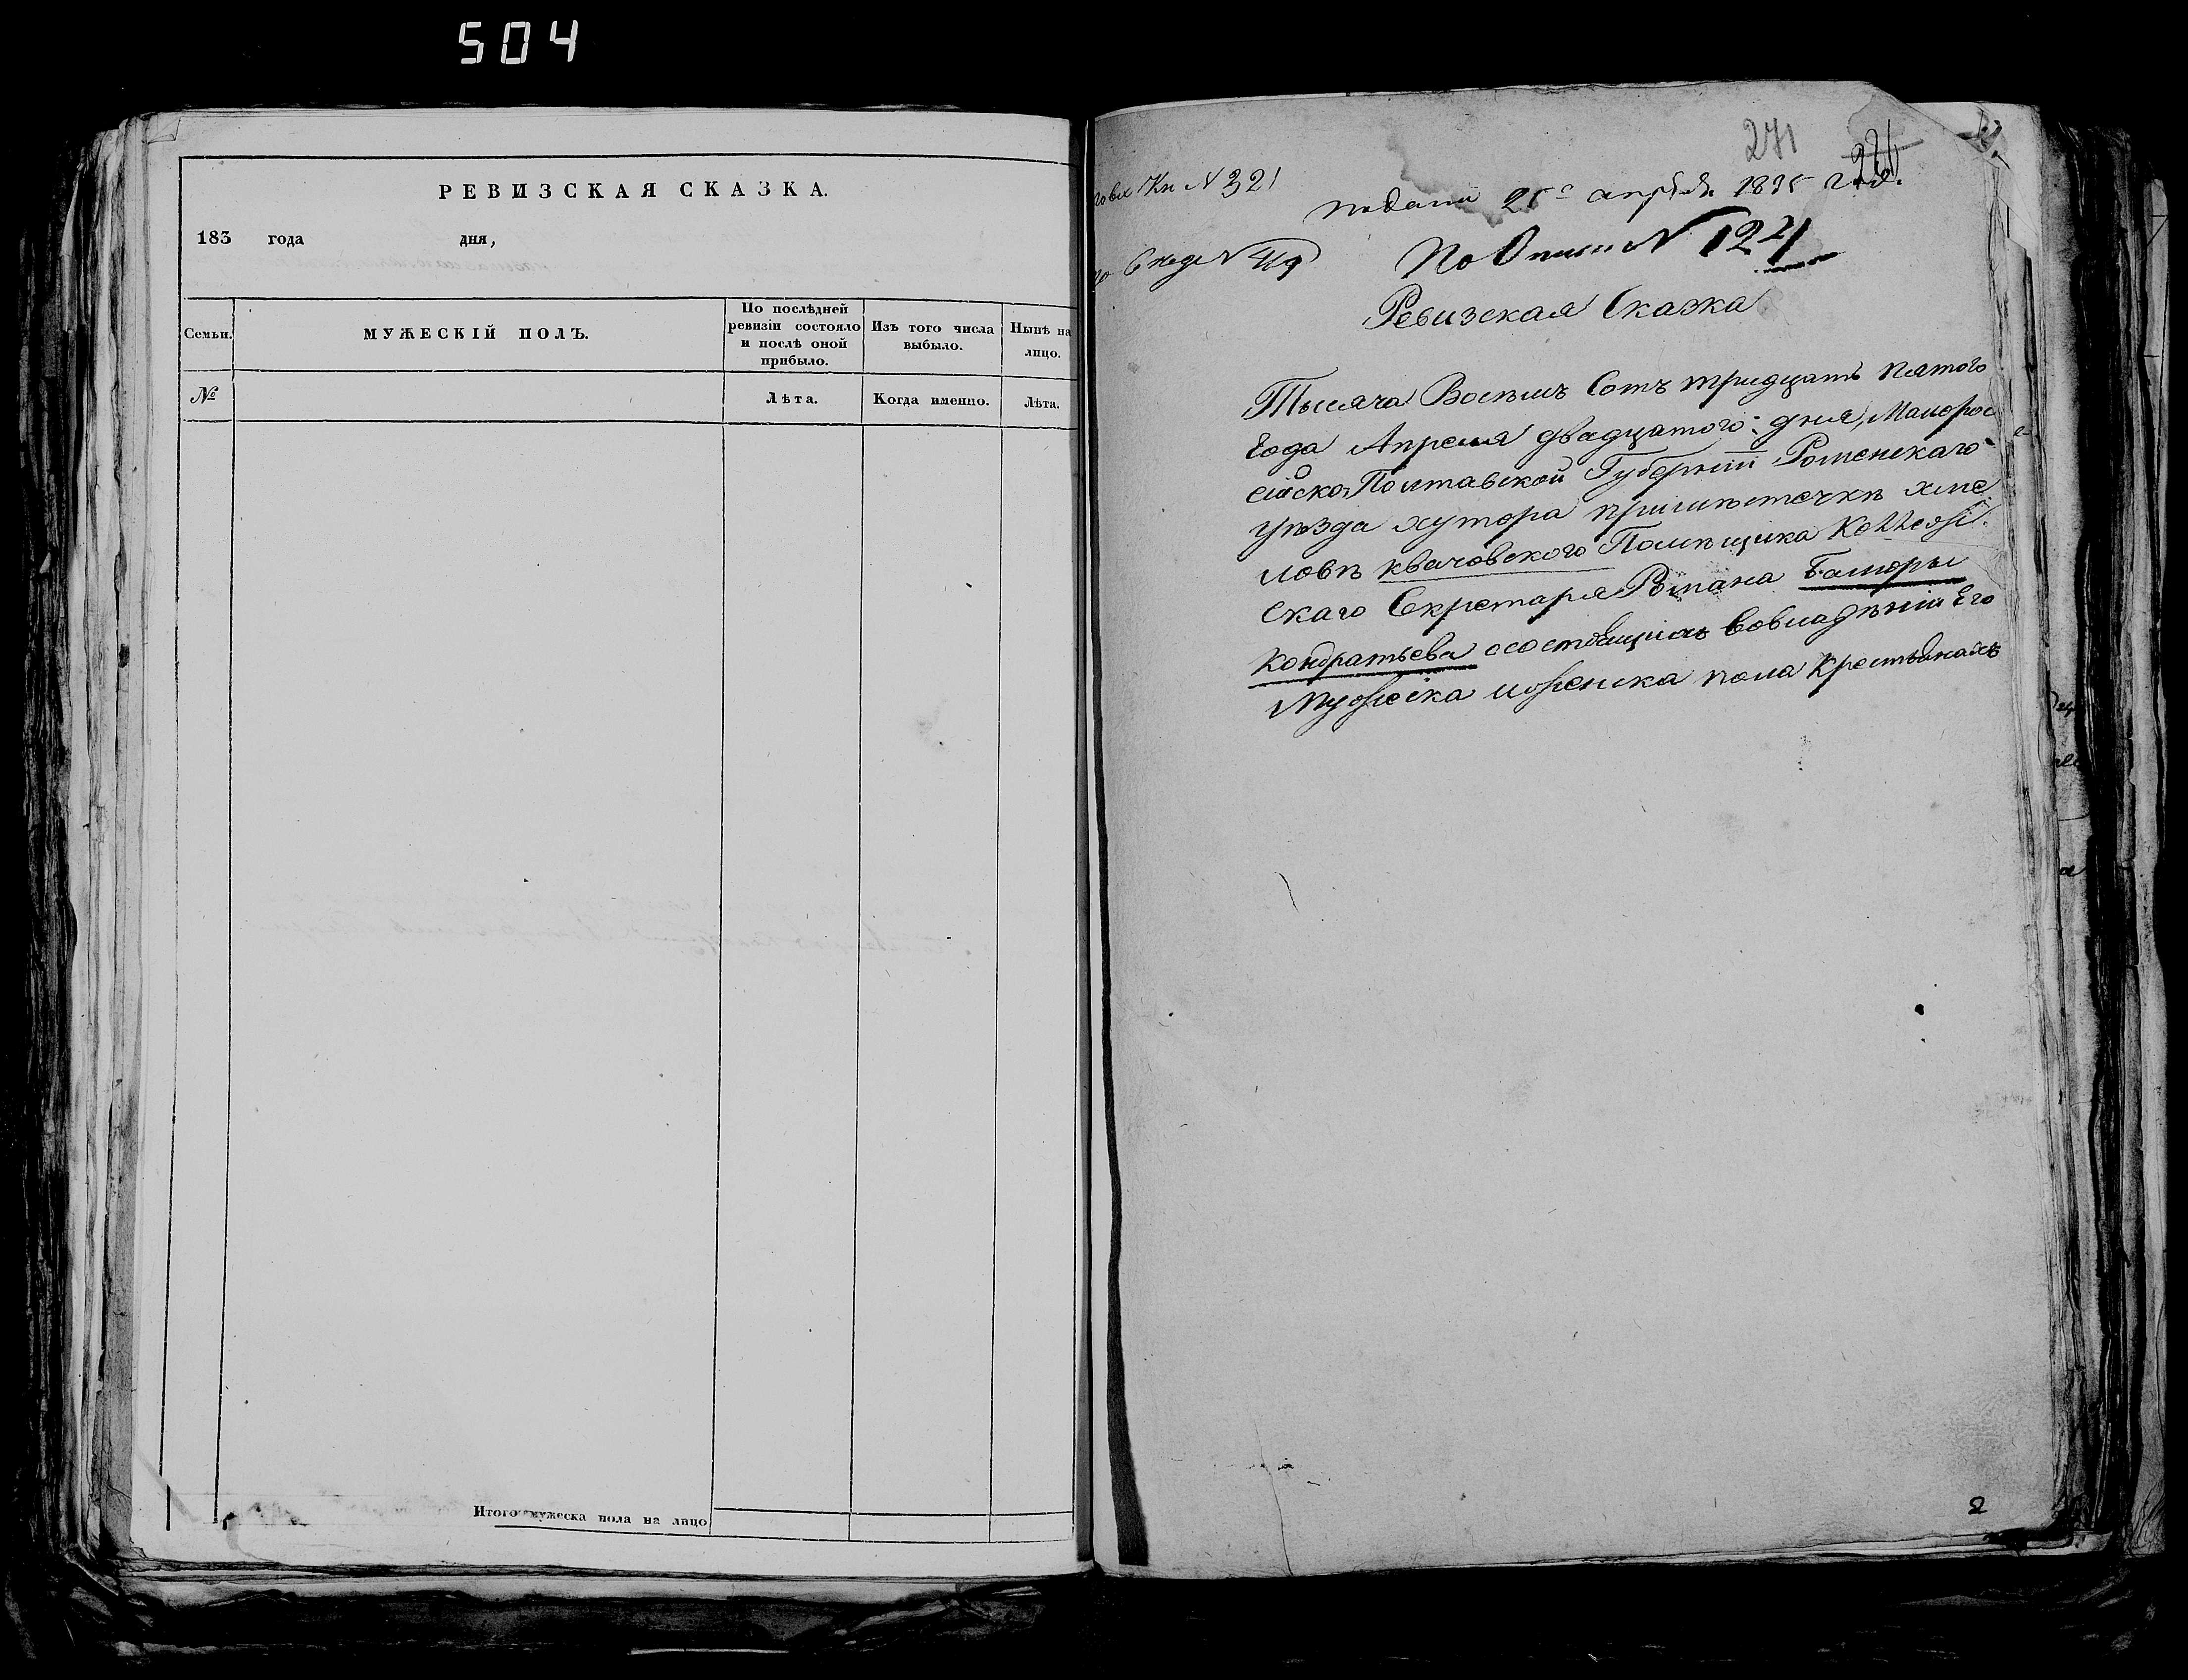 504
РЕВИЗСКАЯ СКАЗКА.
183 года дня,
Семьи.
МУЖЕСКІЙ ПОЛЪ.
По послѣдней
ревизіи состояло
и послѣ оной
прибыло.
Изъ того числа
выбыло.
Нынѣ на
лицо.
№
Лѣта.
Когда именно.
Лѣта.
Итого мужеска пола на лицо
271
Кн N 321
подана 25го апреля 1835 года.
N 49
По Описи N 124
Ревизская Сказка
Тысяча Восемь Сотъ тридцать пятого
Года Апреля двадцатого дня, Малорос
сійской Полтавской Губерніи Роменскаго
уѣзда хутора приместечкѣ хме
ловѣ квачовского Помѣщика Коллежс
скаго Секретаря Романа
Кондратьева осостоящихъ вовладѣніи Его
Мужеска иженска пола Крестьянахъ
2